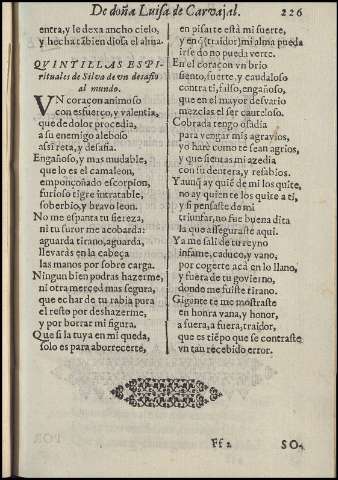 De doña Luisa de Carvajal. 226
entra, y le dexa ancho cielo,
y hecha tãbien diosa el alma.
QVINTILLAS ESPI-
rituales de Silva de vn desafio
al mundo.
VN coraçon animoso
con esfuerço, y valentia,
que de dolor procedia,
a su enemigo aleboso
assi reta, y desafia.
Engañoso, y mas mudable,
que lo es el camaleon,
emponçoñado escorpion,
furioso tigre intratable,
soberbio, y brauo leon.
No me espanta tu fiereza,
ni tu furor me acobarda:
aguarda tirano, aguarda,
lleuaràs en la cabeça
las manos por sobre carga.
Ningun bien podras hazerme,
ni otra merced mas segura,
que echar de tu rabia pura
el resto por deshazerme,
y por borrar mi figura.
Que si la tuya en mi queda,
solo es para aborrecerte,
en pisarte está mi suerte,
y en q̃ (traidor) mi alma pueda
irse do no pueda verte.
En el coraçon vn brio
siento, fuerte, y caudaloso
contra ti, falso, engañoso,
que en el mayor desvario
mezclas el ser cauteloso.
Cobrada tengo osadia
para vengar mis agravios,
yo harè como te sean agrios,
y que sientas mi azedia
con su dentera, y resabios.
Yaunq̃ ay quiẽ de mi los quite,
no ay quien te los quite a ti,
y si pensaste de mi
triunfar, no fue buena dita
la que asseguraste aqui.
Ya me sali de tu reyno
infame, caduco, y vano,
por cogerte acà en lo llano,
y fuera de tu govierno,
donde me fuiste tirano.
Gigante te me mostraste
en honra vana, y honor,
a fuera, a fuera, traidor,
que es tiẽpo que se contraste
vn tan recebido error.
Ff 2 SO-